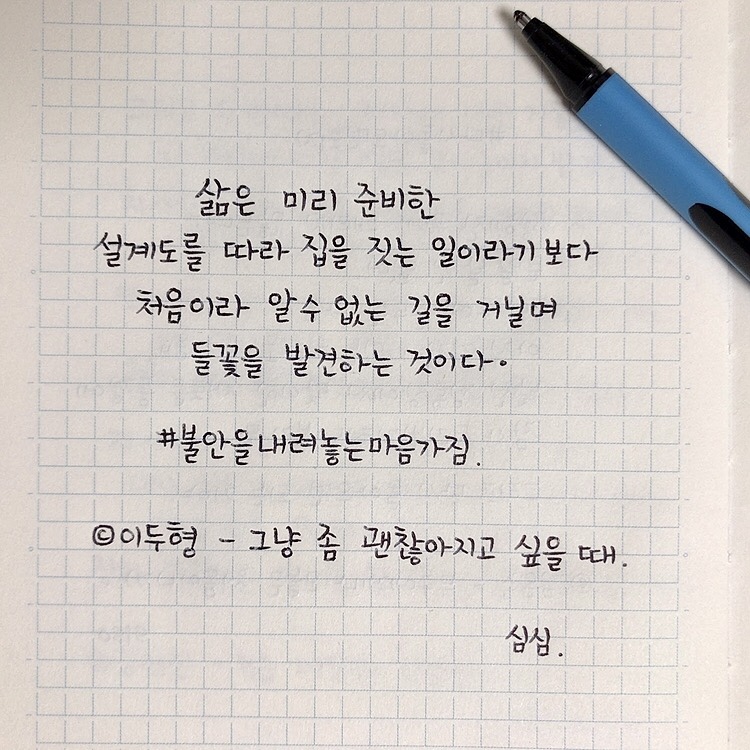 삶은 미리 준비한
설계도를 따라 집을 짓는 일이라기보다
처음이라 알 수 없는 길을 거닐며
들꽃을 발견하는 것이다.
#불안을내려놓는마음가짐.
©이두형 - 그냥 좀 괜찮아지고 싶을 때.
심심.